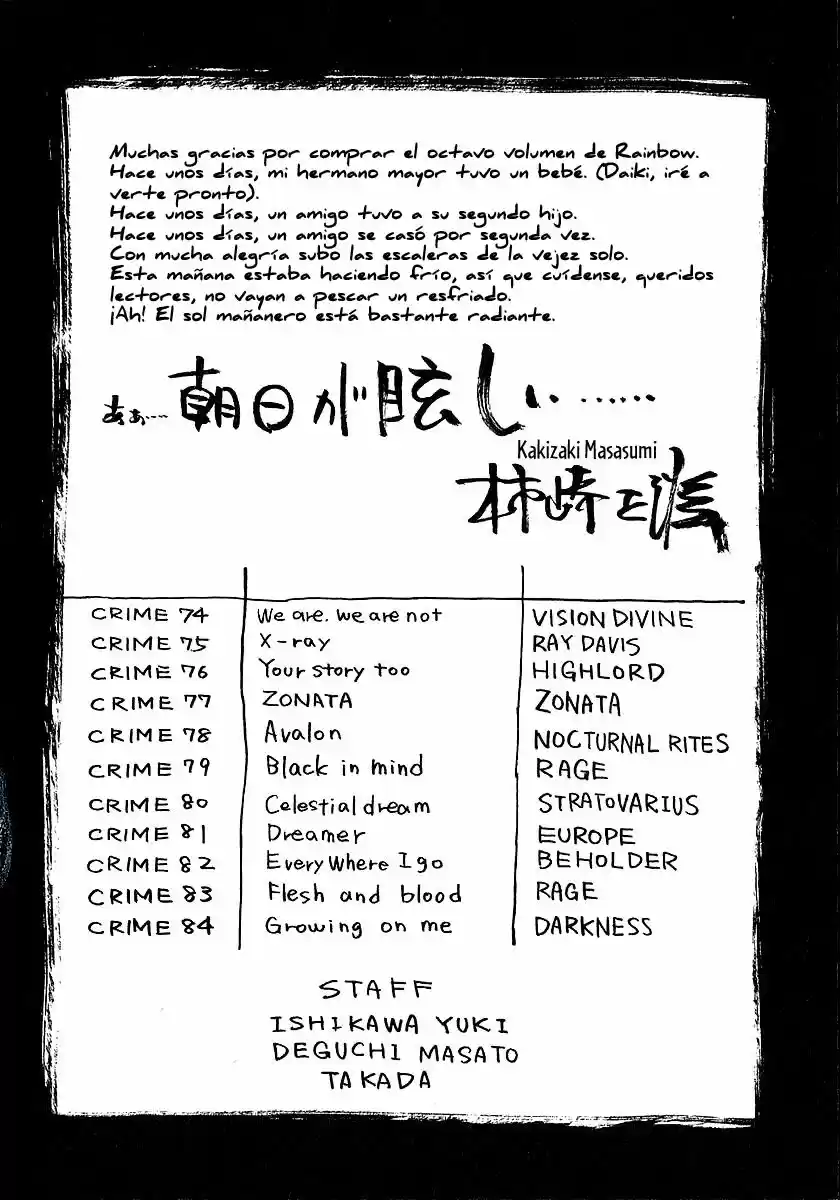 Muchas gracias por comprar el octavo volumen de Rainbow.
Hace unos días, mi hermano mayor tuvo un bebé. (Daiki, iré a
verte pronto).
Hace unos días, un amigo tuvo a su segundo hijo.
Hace unos días, un amigo se casó por segunda vez.
Con mucha alegría subo las escaleras de la vejez solo.
Esta mañana estaba haciendo frío, así que cuídense, queridos
lectores, no vayan a pescar un resfriado.
¡Ah! El sol mañanero está bastante radiante.
あぁ…朝日が眩しい……
Kakizaki Masasumi
柿崎正澄
CRIME 74 We are. we are not VISION DIVINE
CRIME 75 X-ray RAY DAVIS
CRIME 76 Your story too HIGHLORD
CRIME 77 ZONATA ZONATA
CRIME 78 Avalon NOCTURNAL RITES
CRIME 79 Black in mind RAGE
CRIME 80 Celestial dream STRATOVARIUS
CRIME 81 Dreamer EUROPE
CRIME 82 Every Where I go BEHOLDER
CRIME 83 Flesh and blood RAGE
CRIME 84 Growing on me DARKNESS
STAFF
ISHIKAWA YUKI
DEGUCHI MASATO
TAKADA